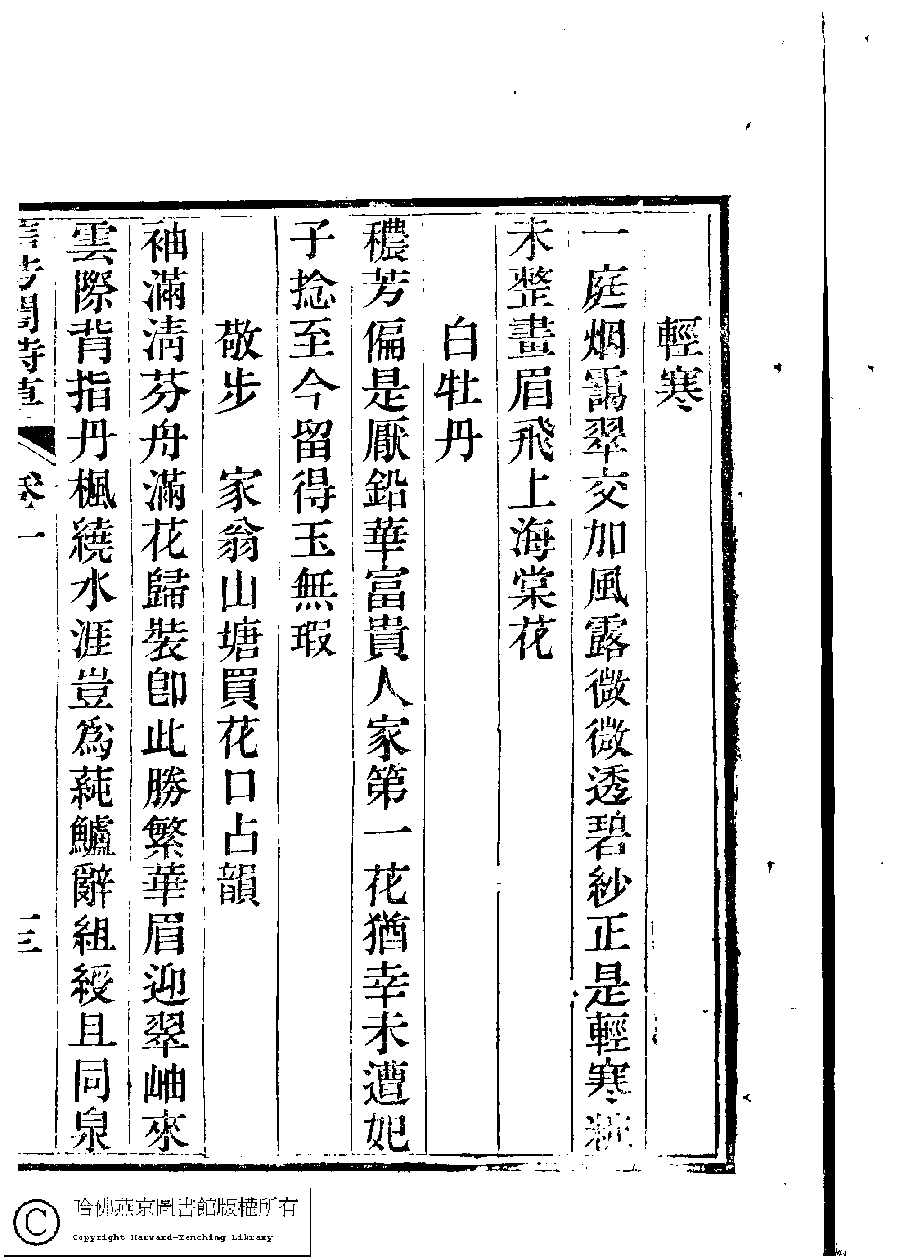 輕寒
一庭烟靄翠交加風露微微透碧紗正是輕寒粧
未整畫眉飛上海棠花
白牡丹
穠芳偏是厭鉛華富貴人家第一花猶幸未遭妃
子捻至今留得玉無瑕
敬步　家翁山塘買花口占韻
袖滿淸芬舟滿花歸裝卽此勝繁華眉迎翠岫來
雲際背指丹楓繞水涯豈爲蒓鱸辭組綬且同泉
詩草 卷一 三
哈佛燕京圖書館版權所有
Copyright Harvard-Yenching Library